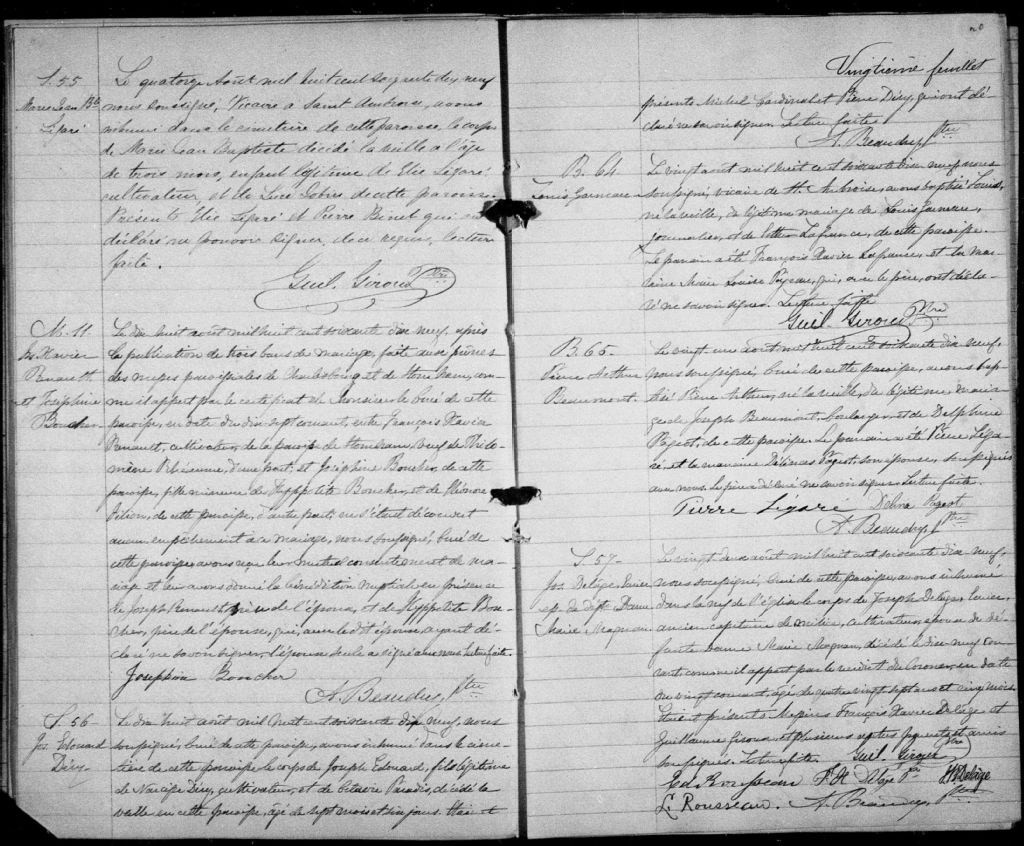 S. 55
Marie Jean Bte
Légaré
Le quatorze Août mil huit cent soixante dix neuf
nous soussigné, Vicaire à Saint Ambroise, avons
inhumé dans le cimetière de cette paroisse le corps
de Marie Jean Baptiste décédé la veille à l'âge
de trois mois, enfant légitime de Elie Légaré
cultivateur et de Luce de cette paroisse
Présents Elie Légaré et Pierre Binet qui ont
déclaré ne pouvoir signer, de ce requis, lecture
faite.
Guil. Giroux Ptre
M. 11
Frs Xavier
Renault
et Joséphine
Boucher
Le dix huit août mil huit cent soixante dix neuf, après
la publication de trois bans de mariage, faite aux prônes
des messes paroissiales de Charlesbourg et de Stoneham, com-
me il appert par le certificat de Monsieur le Curé de cette
paroisse, en date du dix sept courant, entre François Xavier
Renault, cultivateur, de la paroisse de Stoneham, veuf de Philo-
mène d'une part, et Joséphine Boucher, de cette
paroisse, fille mineure de Hyppolite Boucher, et de Eléonore
de cette paroisse, d'autre part, ne s'étant découvert
aucun empêchement à ce mariage, nous soussigné, Curé de
cette paroisse, avons reçu leur mutuel consentement de ma-
riage et leur avons donné la bénédiction nuptiale en présence
de Joseph Renault, de l'époux, et de Hyppolite Bou-
cher, père de l'épouse, qui, avec le dit époux, ayant dé-
claré ne savoir signer, l'épouse seule a signé avec nous. Lecture faite.
Josephine Boucher
A. Beaudry, Ptre
S. 56
Jos. Edouard
Déry
Le dix huit août mil huit cent soixante dix neuf, nous
soussigné, Curé de cette paroisse, avons inhumé dans le cime-
tière de cette paroisse le corps de Joseph Edouard, fils légitime
de Narcisse Déry, cultivateur, et de Paradis, décédé la
veille en cette paroisse, âgé de sept mois et six jours. Etaient
20
Vingtième feuillet
présents Michel Cardinal et Pierre Déry, qui ont dé-
claré ne savoir signer. Lecture faite
A. Beaudry, Ptre
B. 64
Louis Garneau
Le vingt août mil huit cent soixante dix neuf nous
soussigné, vicaire de St Ambroise, avons baptisé Louis,
né la veille, du légitime mariage de Louis Garneau,
journalier, et de Lafrance, de cette paroisse.
Le parrain a été François Xavier Lafrance, et la mar-
raine Marie Louise Pageau, qui, avec le père, ont décla-
ré ne savoir signer. Lecture faite
Guil. Giroux Ptre
B. 65.
Pierre Arthur
Beaumont.
Le vingt un août mil huit cent soixante dix neuf,
nous soussigné, Curé de cette paroisse, avons bap-
tisé Pierre Arthur, né la veille, du légitime maria-
ge de Joseph Beaumont, boulanger, et de Delphine
Pageot, de cette paroisse. Le parrain a été Pierre Léga-
ré, et la marraine Pageot, son épouse, soussignés
avec nous. Le père a déclaré ne savoir signer. Lecture faite.
Pierre Légaré Pageot
A. Beaudry, Ptre
S. 57
Jos. Delâge Lavier
ép. de déf. Dame
Marie Magnan
Le vingt deux août mil huit cent soixante dix neuf,
nous soussigné, Curé de cette paroisse, avons inhumé
dans la nef de l'église le corps de Joseph Delâge,
ancien capitaine de milice, cultivateur, époux de dé-
funte Dame Marie Magnan, décédé le dix neuf cou-
rant comme il appert par le verdict du Coroner, en date
du vingt courant, âgé de quatre vingt sept ans et cinq mois.
Etaient présents Messires François Xavier Delâge et
Guillaume Giroux et plusieurs autres parents et amis
soussignés. Lecture faite. Guil. Giroux Ptre
Ed. Rousseau F. X. Delâge Ptre
L. Rousseau. A. Beaudry, Ptre